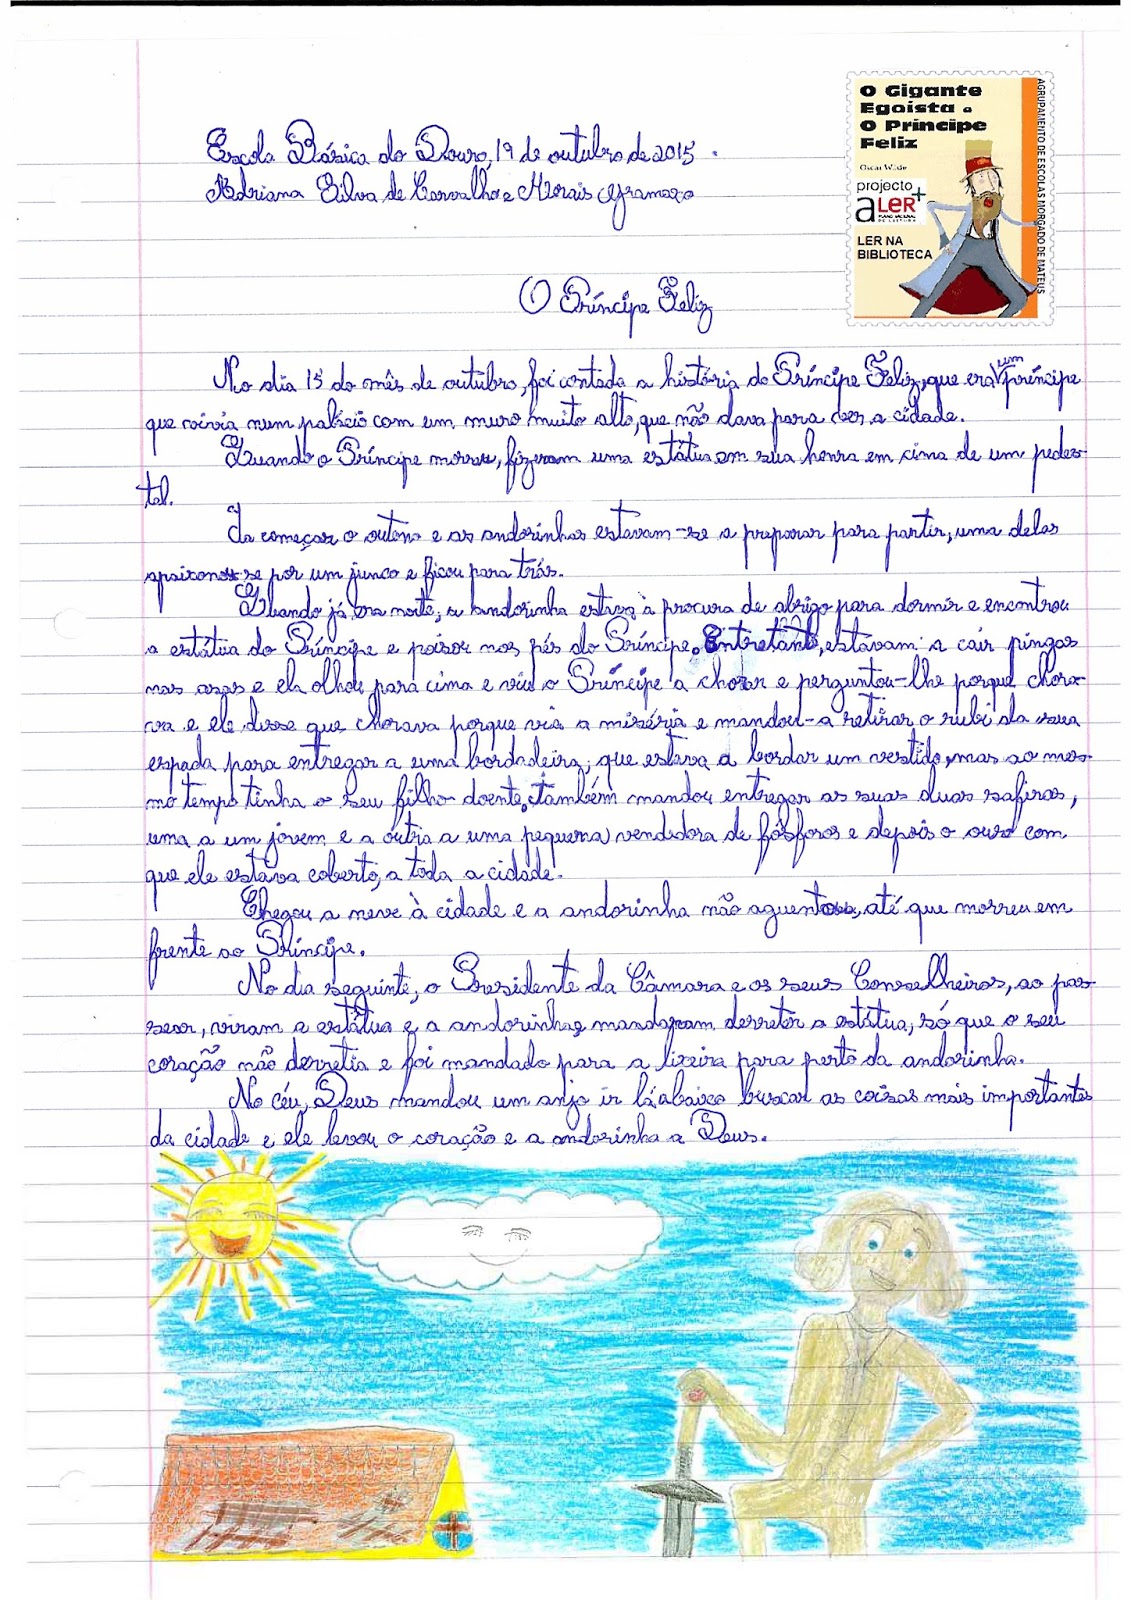 O Gigante
Egoista e
O Príncipe
Feliz
Oscar Wilde
projecto
a LeR+
PLANO NACIONAL
DE LEITURA
LER NA
BIBLIOTECA
AGRUPAMENTO DE ESCOLAS MORGADO DE MATEUS
Escola Básica do Douro, 19 de outubro de 2015.
Adriana Silva de Carvalho e Morais Gramaxo
O Príncipe Feliz
No dia 15 do mês de outubro, foi contada a história do Príncipe Feliz, que era um príncipe
que vivia num palácio com um muro muito alto, que não dava para ver a cidade.
Quando o Príncipe morreu, fizeram uma estátua em sua honra em cima de um pedes-
tal.
Ia começar o outono e as andorinhas estavam-se a preparar para partir, uma delas
apaixonou-se por um junco e ficou para trás.
Quando já era noite, a andorinha estava à procura de abrigo para dormir e encontrou
a estátua do Príncipe e poisou nos pés do Príncipe. Entretanto, estavam a cair pingas
nas asas e ela olhou para cima e viu o Príncipe a chorar e perguntou-lhe porque chora-
va e ele disse que chorava porque via a miséria e mandou-a retirar o rubi da sua
espada para entregar a uma bordadeira, que estava a bordar um vestido, mas ao mes-
mo tempo tinha o seu filho doente, também mandou entregar as suas duas safiras,
uma a um jovem e a outra a uma pequena vendedora de fósforos e depois o ouro com
que ele estava coberto, a toda a cidade.
Chegou a neve à cidade e a andorinha não aguentou, até que morreu em
frente ao Príncipe.
No dia seguinte, o Presidente da Câmara e os seus Conselheiros, ao pas-
sear, viram a estátua e a andorinha e mandaram derreter a estátua, só que o seu
coração não derretia e foi mandado para a lixeira para perto da andorinha.
No céu, Deus mandou um anjo ir lá abaixo buscar as coisas mais importantes
da cidade e ele levou o coração e a andorinha a Deus.